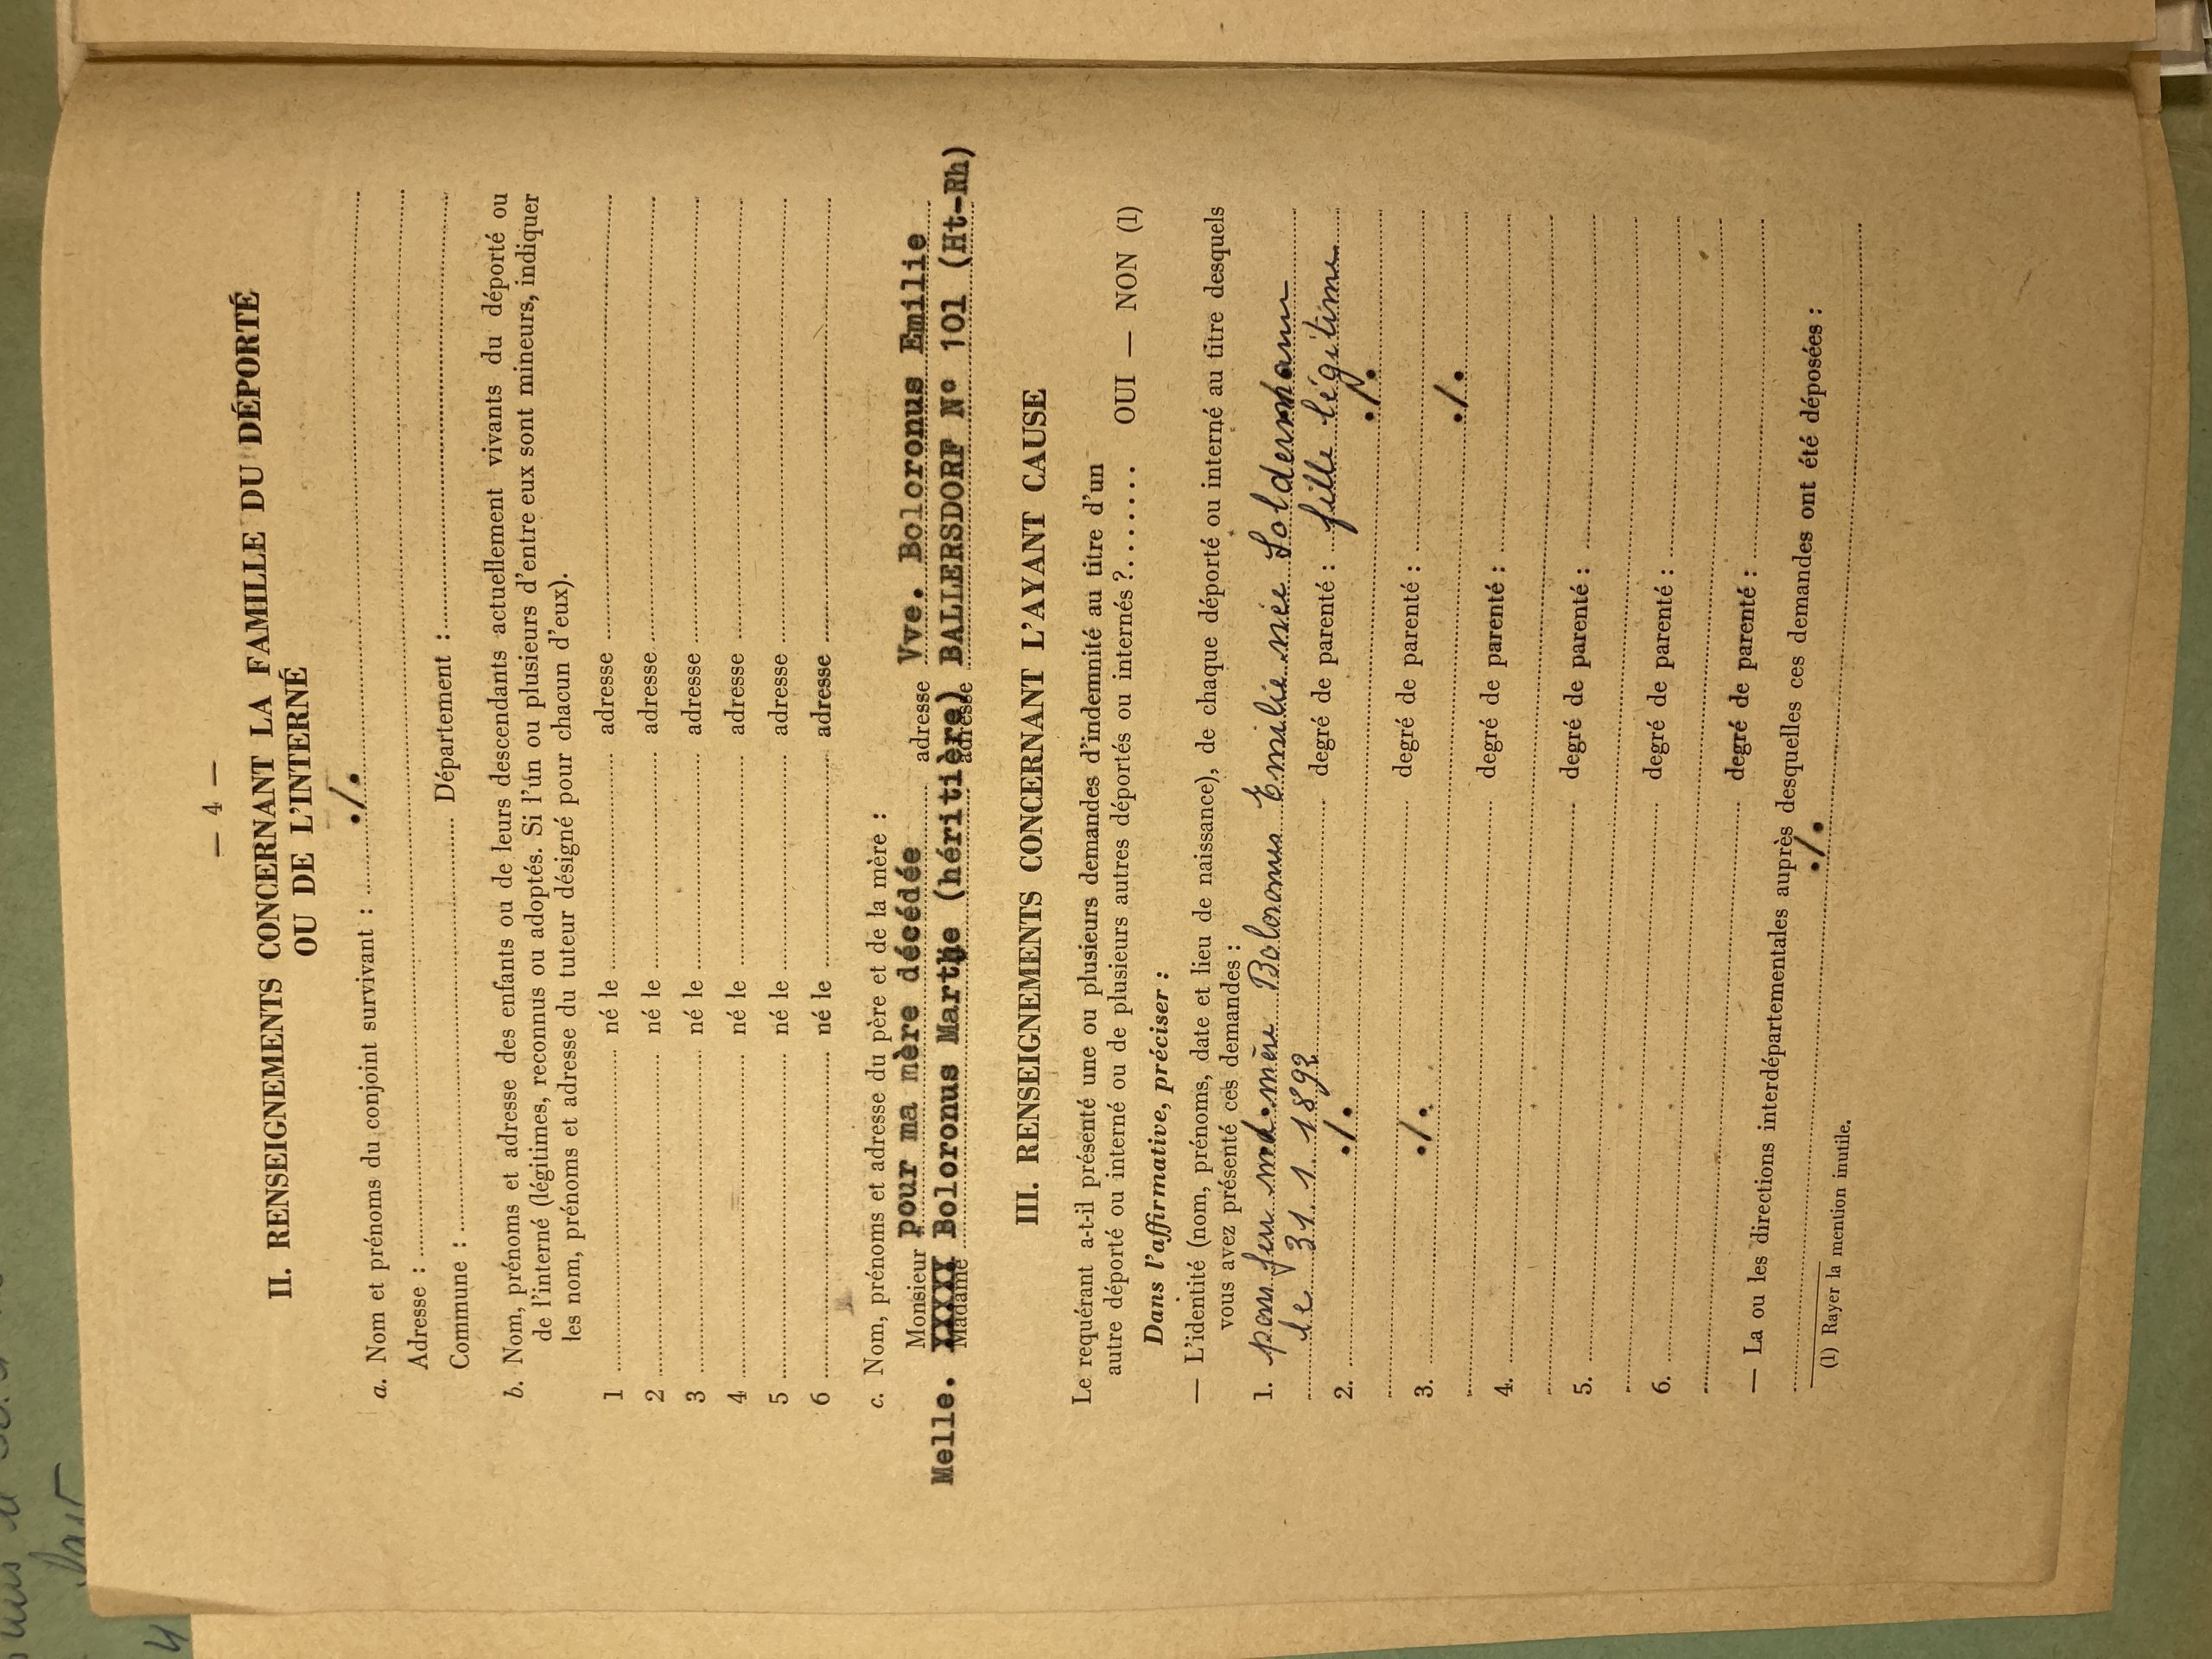 — 4 —
II. RENSEIGNEMENTS CONCERNANT LA FAMILLE DU DÉPORTÉ
OU DE L'INTERNÉ
a. Nom et prénoms du conjoint survivant : ./.
Adresse :
Commune : Département :
b. Nom, prénoms et adresse des enfants ou de leurs descendants actuellement vivants du déporté ou
de l'interné (légitimes, reconnus ou adoptés. Si l'un ou plusieurs d'entre eux sont mineurs, indiquer
les nom, prénoms et adresse du tuteur désigné pour chacun d'eux).
1 né le adresse
2 né le adresse
3 né le adresse
4 né le adresse
5 né le adresse
6 né le adresse
c. Nom, prénoms et adresse du père et de la mère :
Monsieur pour ma mère décédée adresse Vve. Boloronus Emilie
Melle. Madame Boloronus Marthe (héritière) adresse BALLERSDORF N° 101 (Ht-Rh)
III. RENSEIGNEMENTS CONCERNANT L'AYANT CAUSE
Le requérant a-t-il présenté une ou plusieurs demandes d'indemnité au titre d'un
autre déporté ou interné ou de plusieurs autres déportés ou internés ?....... OUI — NON (1)
Dans l'affirmative, préciser :
— L'identité (nom, prénoms, date et lieu de naissance), de chaque déporté ou interné au titre desquels
vous avez présenté ces demandes :
1. pour feu ma mère Boloronus Emilie née Soldermann
le 31 1 1892 degré de parenté : fille légitime
2. ./. ./.
degré de parenté :
3. ./. ./.
degré de parenté :
4.
degré de parenté :
5.
degré de parenté :
6.
degré de parenté :
— La ou les directions interdépartementales auprès desquelles ces demandes ont été déposées :
./.
(1) Rayer la mention inutile.